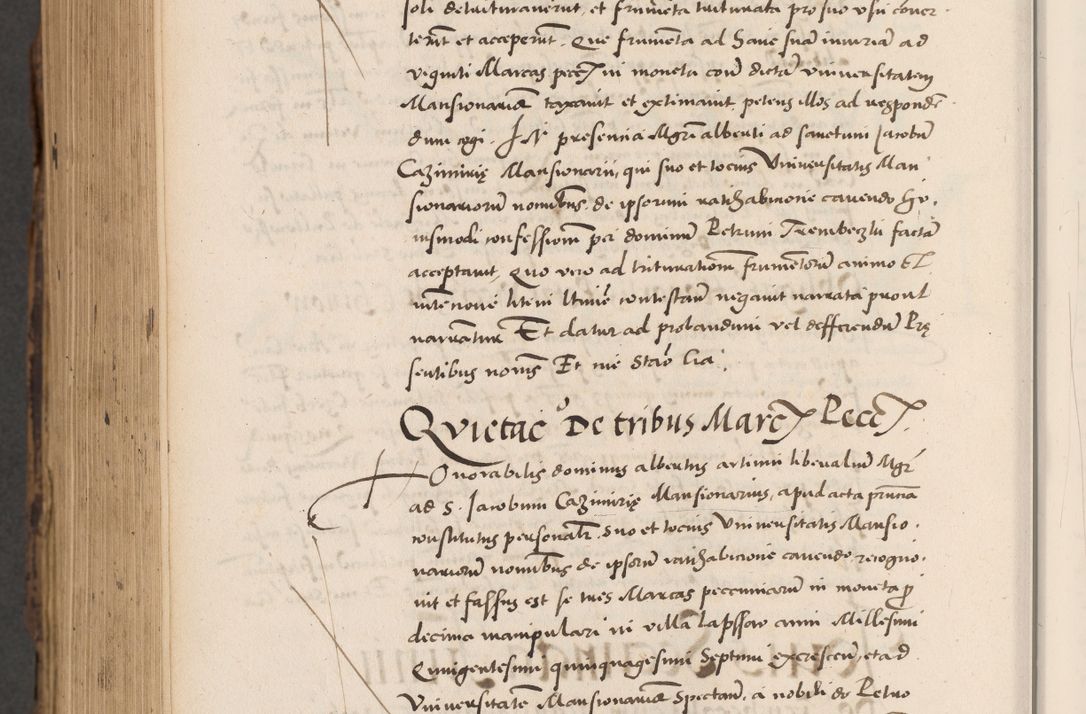 soli detritura&uerunt, et frumēta triturata pro suo usu conver
terūt et acceperūt. Que frumēta ad hanc suā iniuriā ad
viginti Marcas pecc in moneta com dictā universitatem
Mansionariorū taxavit et extimavit, petens illos ad responden
dum cogi. In presencia Mgri alberti ad sanctum Jacobū
Cazimirie Mansionarii, qui suo et tocius Universitatis Man
sionariorū nomībus de ipsorum ratihabicione cavendo hu.
iusmodi confessionem per dominum Petrum Trembeczki factā
acceptavit, Quo vero ad trituracionem frumētorū animo
litem contestan negavit narrata prout
narrātur Et datur ad probandum vel defferendū Prę
sentibus nomīs Et me Stā lia.
Qvietac° De tribus Marc Pecc.
Onorabilis dominus albertus artium liberaliū Mgr
ad S. Jacobum Cazimirię Mansionarius, apud acta prntia
constitutus personalr. Suo et tocius Universitatis Mansio.
nariorū nomībus de ipsorū ratihabicione cavendo recogno.
vit et fassus est se tres Marcas pecuniarū in moneta p
decima manipulari in villa Lapssow anni Millesimi
Quingentesimi quinquagesimi Septimi excrescen, et ad
Universitatē Mansionariorū spectan, a nobili do Petro